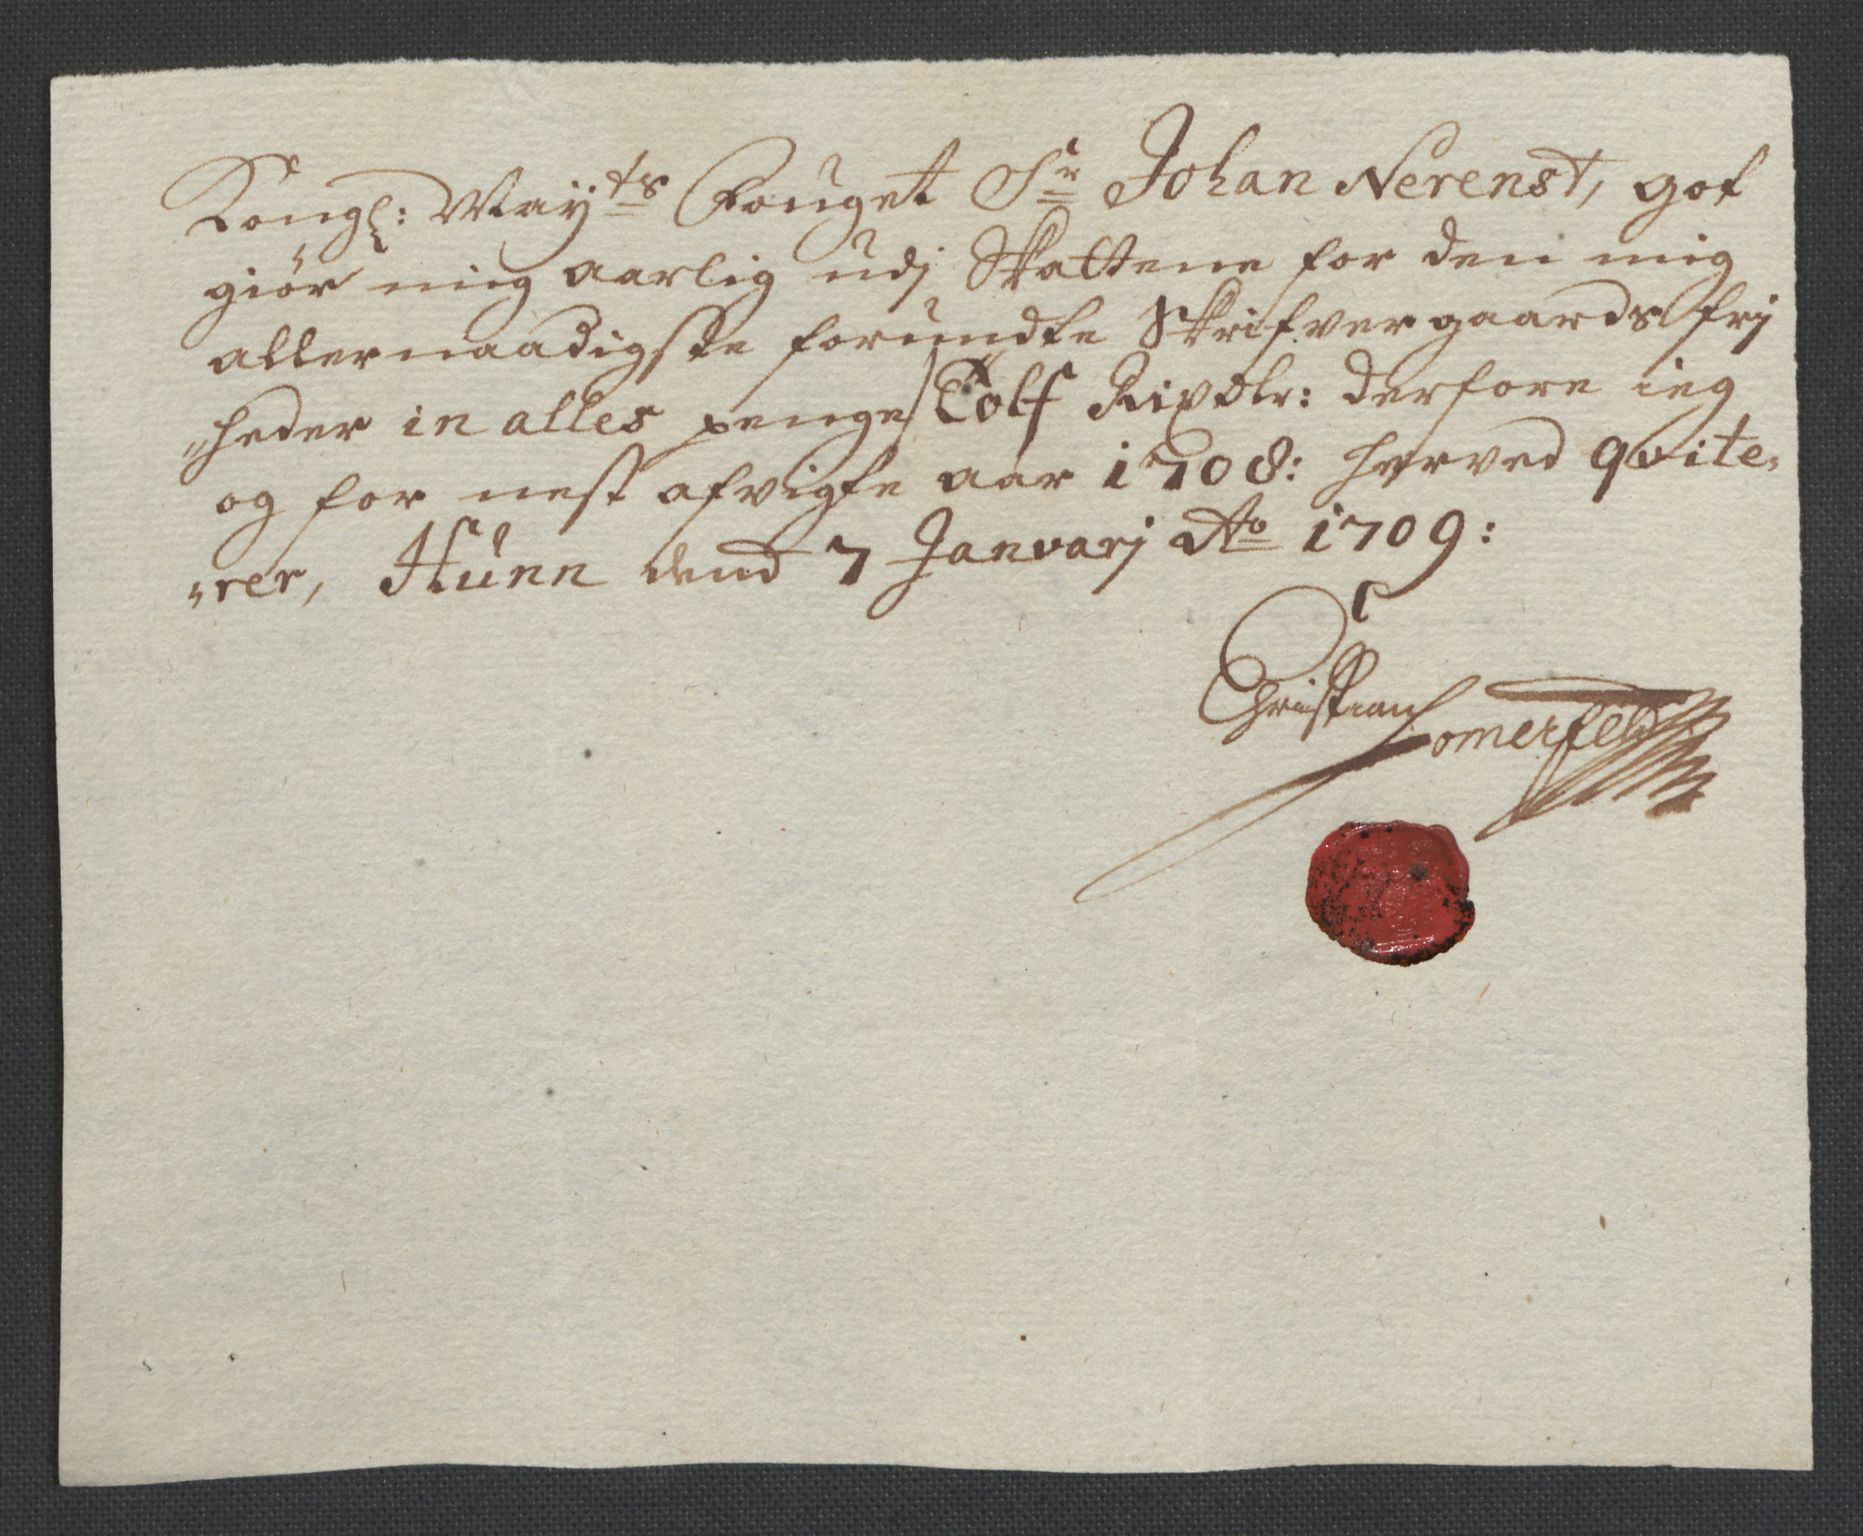 Kongl: Maÿts Fouget Sr Johan Nerenst, got
giör mig aarlig udj Skattene for den mig
allernaadigste forundte Skrifver gaards frj
„heder in alles penge Tolf Rixdlr: derfore ieg
og for nest afvigte aar 1708: herved qvite„
„rer, Hunn dend 7 Januarj Ao 1709:
Christian Somerfeld